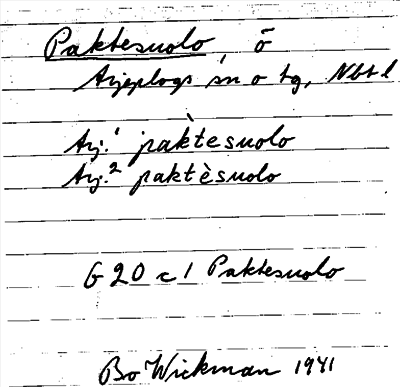 Paktesuolo, ö
Arjeplogs sn o tg, Nbtl
Arj.¹ pàktesuolo
Arj.² paktèsuolo
G 20 c 1 Paktesuolo
Bo Wickman 1941